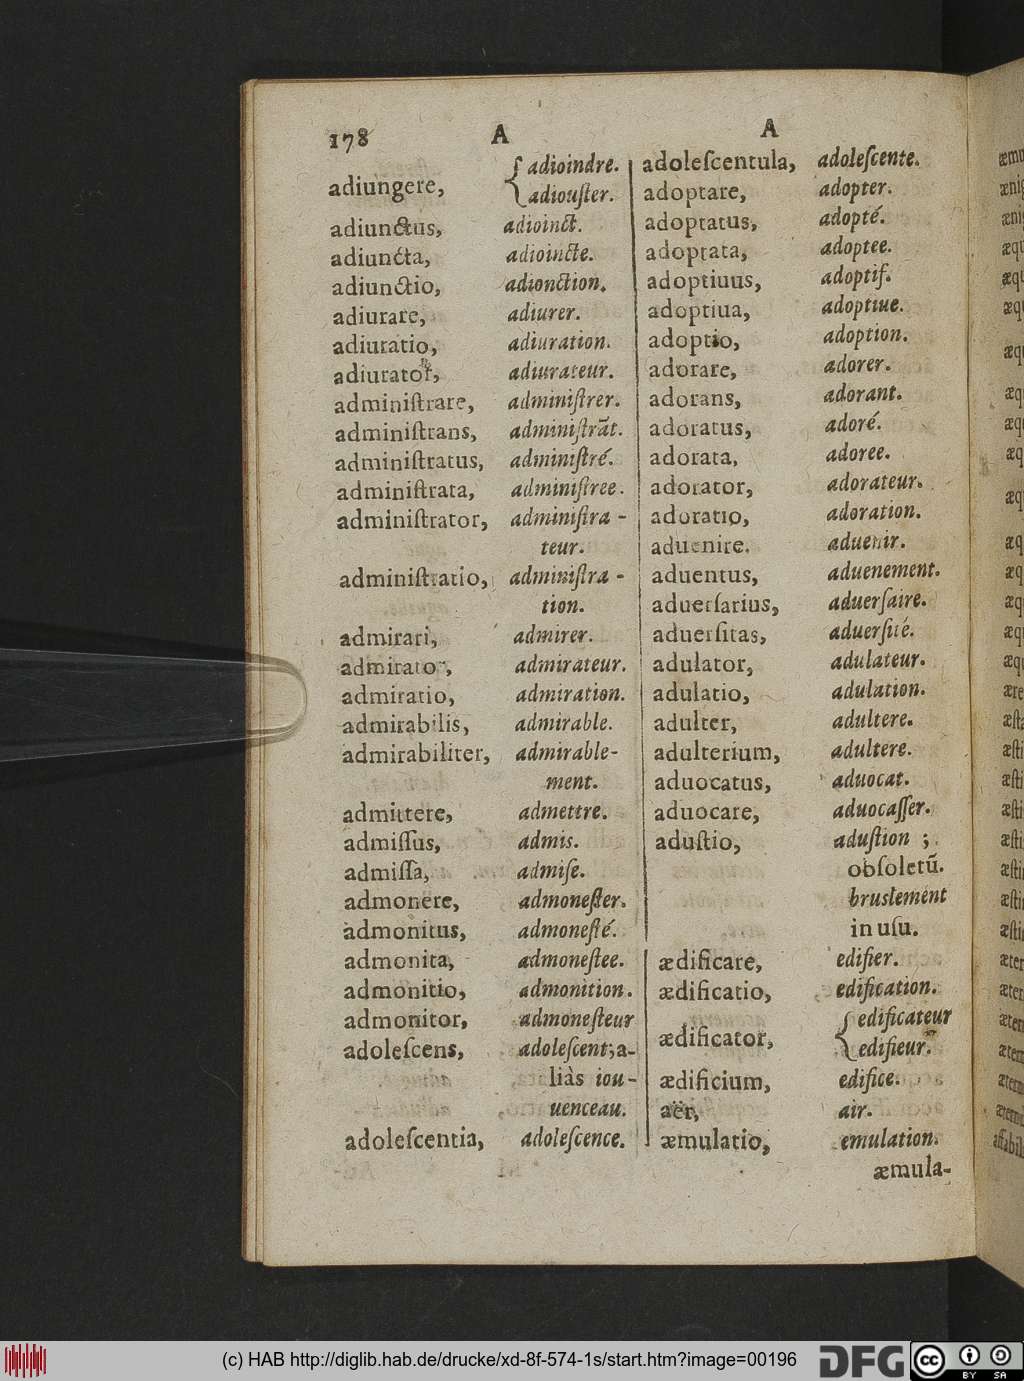 178 A A
adiungere, { adioindre.
adiouſter.
adiunctus, adioinct.
adiuncta, adioincte.
adiunctio, adionction.
adiurare, adiurer.
adiuratio, adiuration.
adiurator, adiurateur.
adminiſtrare, adminiſtrer.
adminiſtrans, adminiſtrãt.
adminiſtratus, adminiſtré.
adminiſtrata, adminiſtree.
adminiſtrator, adminiſtra-
teur.
adminiſtratio, adminiſtra-
tion.
admirari, admirer.
admirator, admirateur.
admiratio, admiration.
admirabilis, admirable.
admirabiliter, admirable-
ment.
admittere, admettre.
admiſſus, admis.
admiſſa, admiſe.
admonere, admoneſter.
admonitus, admoneſté.
admonita, admoneſtee.
admonitio, admonition.
admonitor, admoneſteur
adoleſcens, adoleſcent; a-
liàs iou-
uenceau.
adoleſcentia, adoleſcence.
adoleſcentula, adoleſcente.
adoptare, adopter.
adoptatus, adopté.
adoptata, adoptee.
adoptiuus, adoptif.
adoptiua, adoptiue.
adoptio, adoption.
adorare, adorer.
adorans, adorant.
adoratus, adoré.
adorata, adoree.
adorator, adorateur.
adoratio, adoration.
aduenire. aduenir.
aduentus, aduenement.
aduerſarius, aduerſaire.
aduerſitas, aduerſité.
adulator, adulateur.
adulatio, adulation.
adulter, adultere.
adulterium, adultere.
aduocatus, aduocat.
aduocare, aduocaſſer.
aduſtio, aduſtion ;
obſoletũ.
bruslement
in uſu.
ædificare, edifier.
ædificatio, edification.
ædificator, { edificateur
edifieur.
ædificium, edifice.
aër, air.
æmulatio, emulation.
æmula-
(c) HAB http://diglib.hab.de/drucke/xd-8f-574-1s/start.htm?image=00196
DFG
cc BY SA